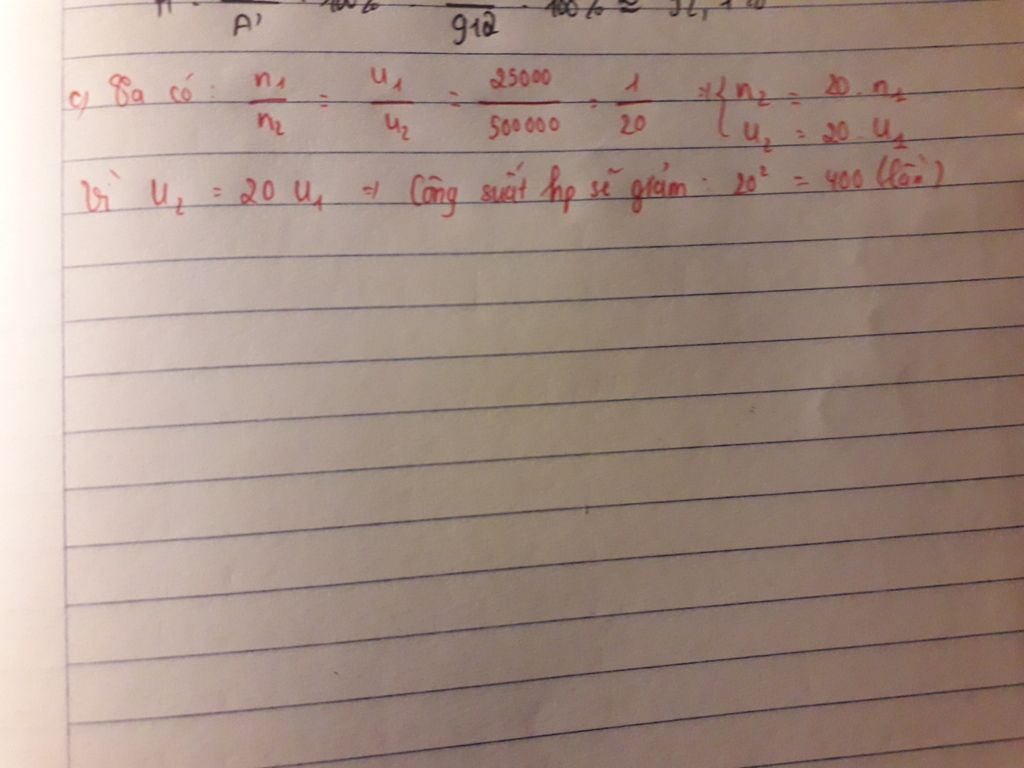 A' 912 100%
c, Ta có : n₁/n₂ = U₁/U₂ = 25000/500000 = 1/20 => { n₂ = 20. n₁
U₂ = 20. U₁
Vì U₂ = 20 U₁ => Công suất hp sẽ giảm : 20² = 400 (lần)